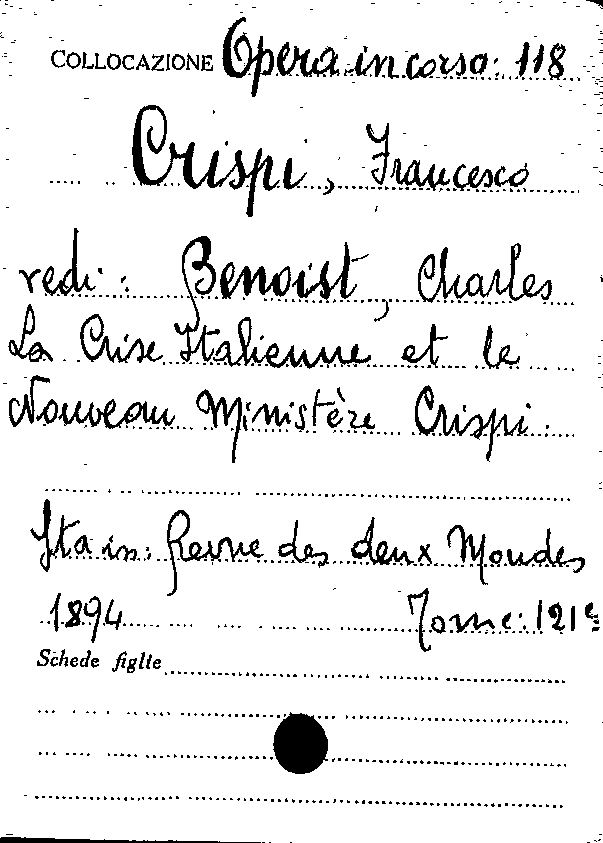 COLLOCAZIONE Opera in corso: 118
Crispi, Francesco
vedi: Benoist, Charles
La Crise Italienne et le
Nouveau Ministère Crispi.
Sta in: Revue des deux Mondes
1894 Tome: 121e
Schede figlie